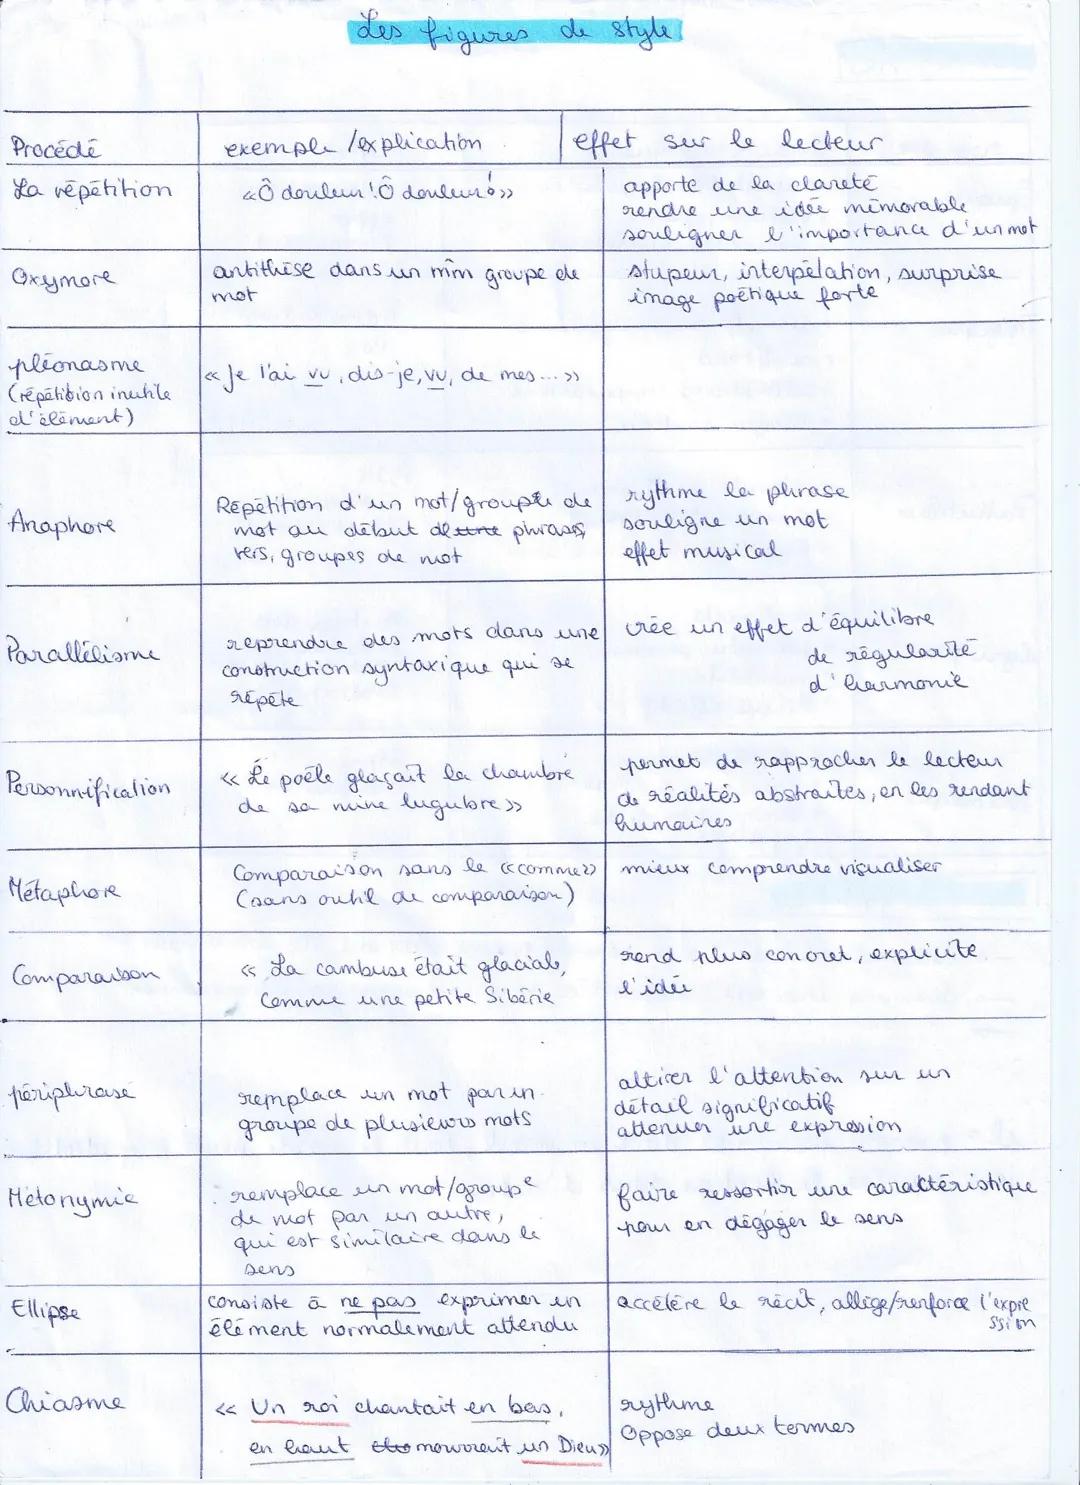 Les figures de style
Procédé
exemple /explication
effet sur le lecteur
La répétition
«Ô douleur! Ô douleur!»
apporte de la clareté
rendre une idée mémorable
souligner l'importance d'un mot
Oxymore
antithèse dans un mm groupe de
mot
stupeur, interpélation, surprise
image poétique forte
pléonasme
(répétition inutile
d'élément)
«Je l'ai vu, dis-je, vu, de mes...»
Anaphore
Répétition d'un mot/groupe de
mot au début de phrases,
vers, groupes de mot
rythme la phrase
souligne un mot
effet musical
Parallélisme
reprendre des mots dans une
construction syntaxique qui se
répète
crée un effet d'équilibre
de régularité
d'harmonie
Personnification
« Le poêle glaçait la chambre
de sa mine lugubre »
permet de rapprocher le lecteur
de réalités abstraites, en les rendant
humaines
Métaphore
Comparaison sans le «comme»
(sans outil de comparaison)
mieux comprendre visualiser
Comparaison
« La cambuse était glaciale,
comme une petite Sibérie
rend plus concret, explicite
l'idée
périphrase
remplace un mot par un
groupe de plusieurs mots
attirer l'attention sur un
détail significatif
attenuer une expression
Métonymie
remplace un mot/groupe
de mot par un autre,
qui est similaire dans le
sens
faire ressortir une caractéristique
pour en dégager le sens
Ellipse
consiste à ne pas exprimer un
élément normalement attendu
accélère le récit, allège/renforce l'expre
ssion
Chiasme
« Un roi chantait en bas,
en haut mourrait un Dieu»
rythme
Oppose deux termes